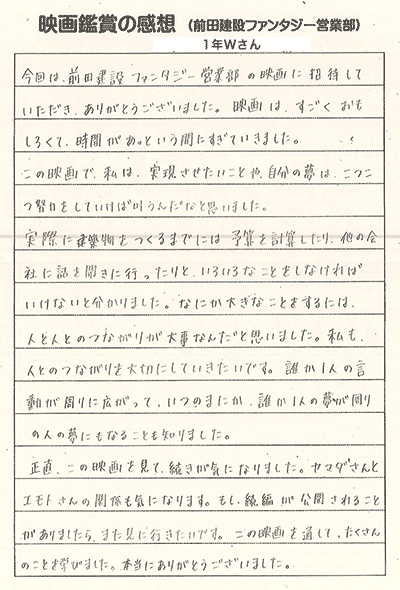 映画鑑賞の感想 (前田建設ファンタジー営業部)
1年Wさん
今回は、前田建設ファンタジー営業部の映画に招待して
いただき、ありがとうございました。映画は、すごくおも
しろくて、時間があっという間にすぎていきました。
この映画で、私は、実現させたいことや、自分の夢は、こつこ
つ努力をしていけば叶うんだなと思いました。
実際に建築物をつくるまでには予算を計算したり、他の会
社に話を聞きに行ったりと、いろいろなことをしなければ
いけないと分かりました。なにか大きなことをするには、
人と人とのつながりが大事なんだと思いました。私も、
人とのつながりを大切にしていきたいです。誰か1人の言
動が周りに広がって、いつのまにか、誰か1人の夢が周り
の人の夢にもなることも知りました。
正直、この映画を見て、続きが気になりました。ヤマダさんと
エモトさんの関係も気になります。もし、続編が公開されること
がありましたら、また見に行きたいです。この映画を通して、たくさん
のことを学びました。本当にありがとうございました。